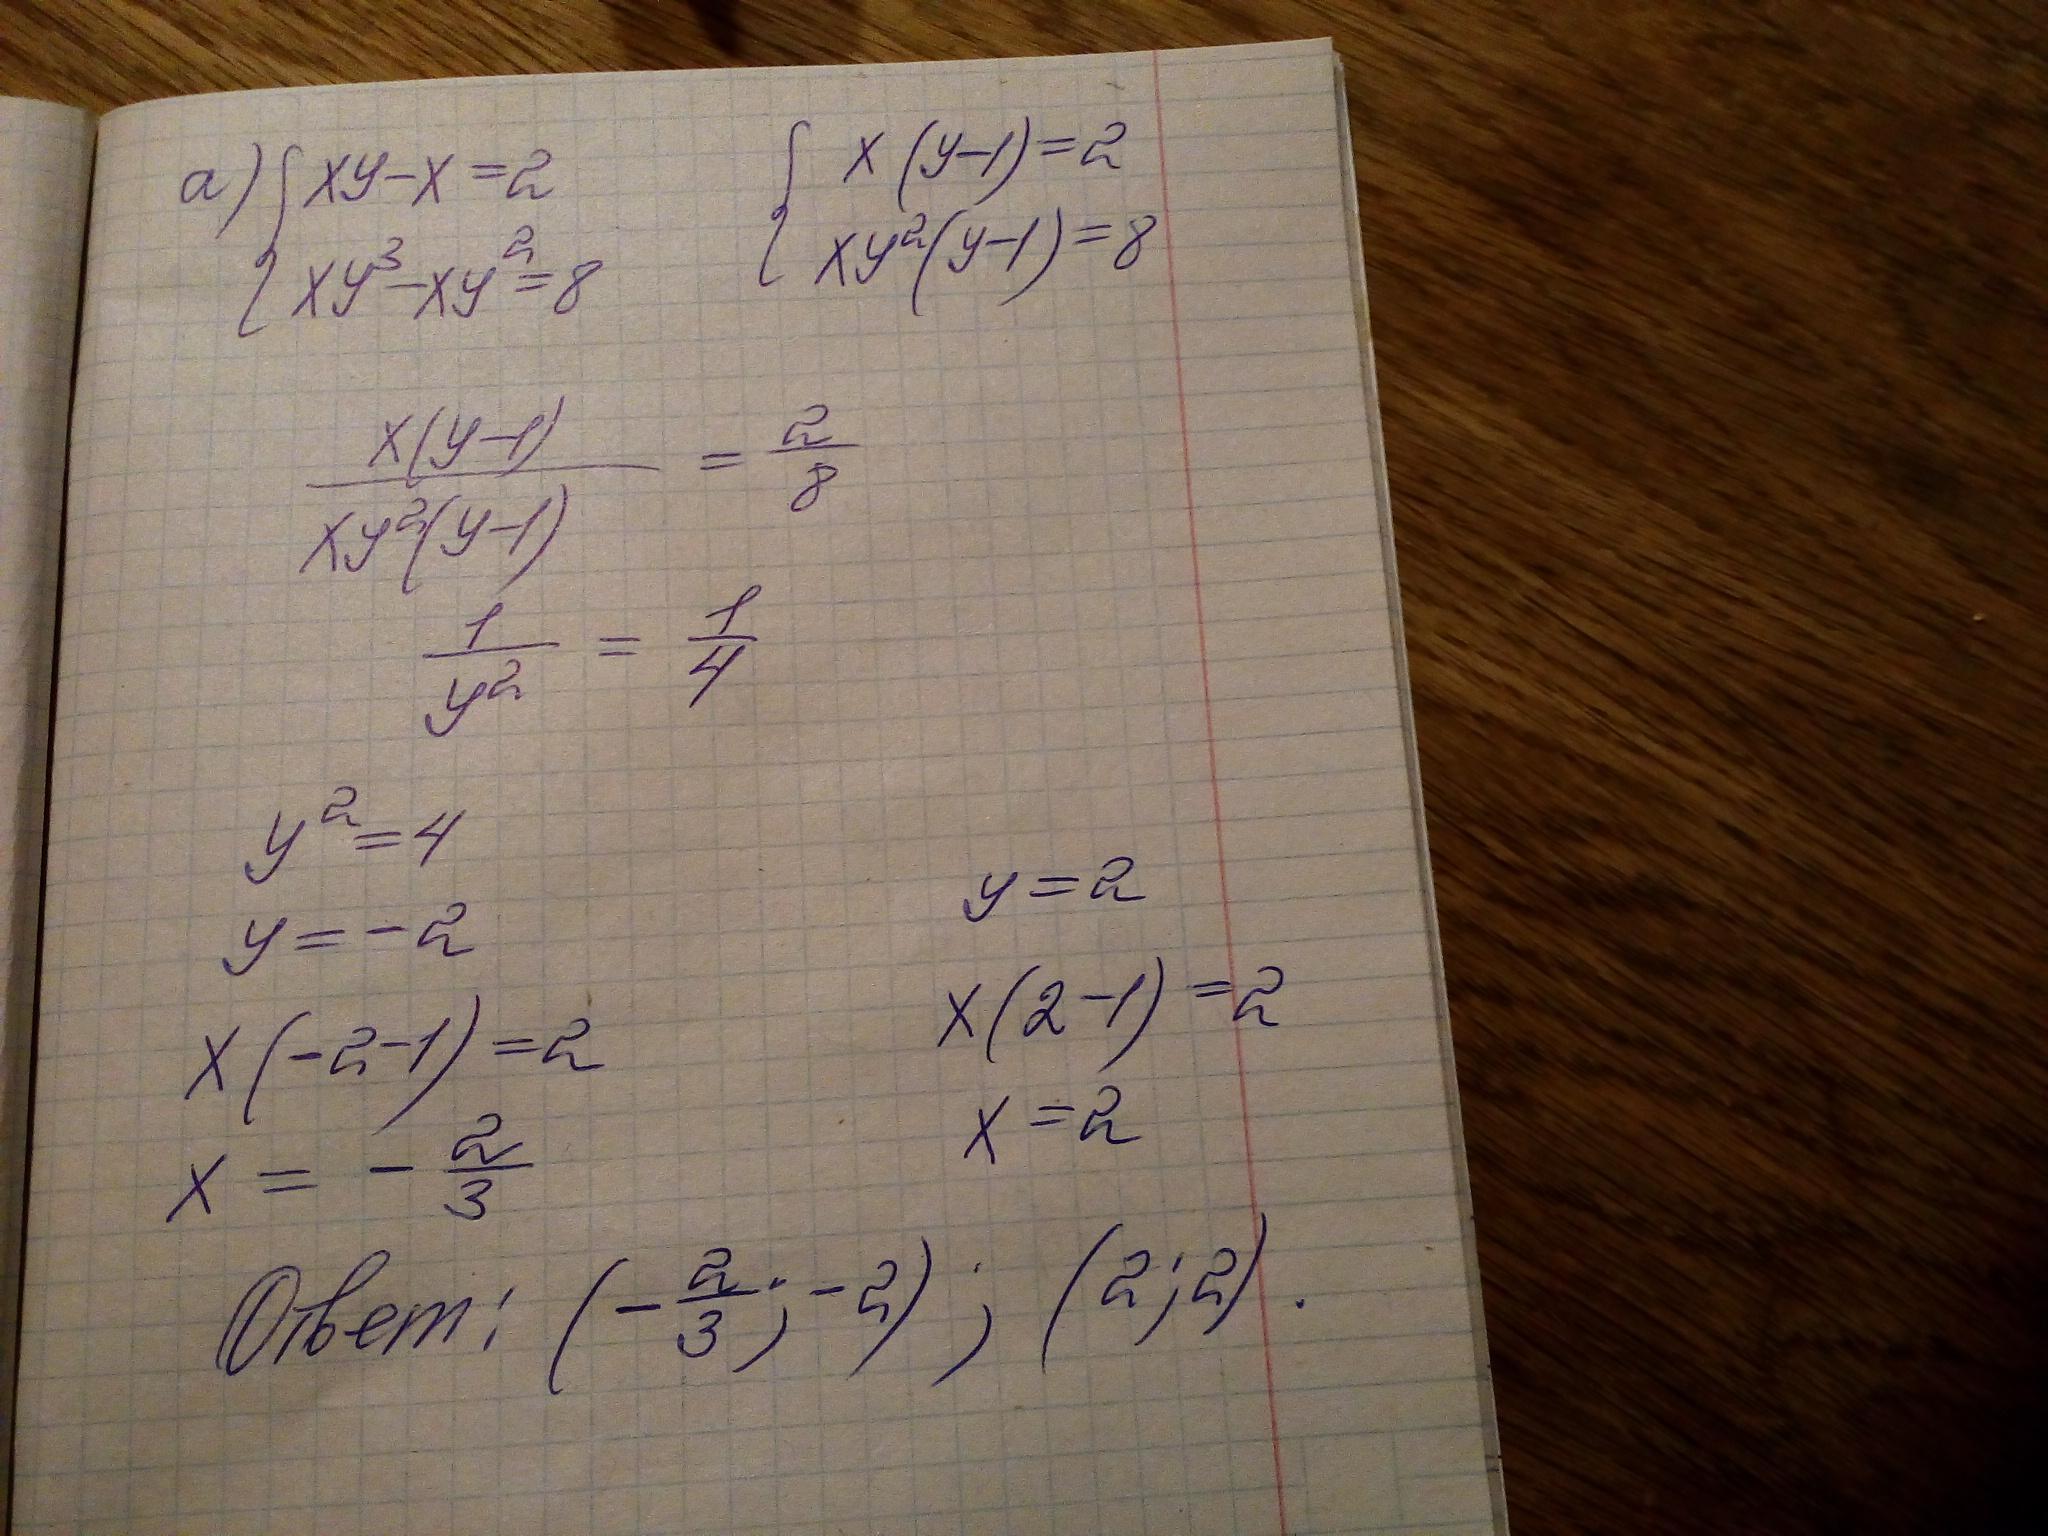 а) { xy-x=2    { x(y-1)=2
{ xy³-xy²=8    { xy²(y-1)=8
x(y-1)/xy²(y-1) = 2/8
1/y² = 1/4
y²=4
y=-2    y=2
x(-2-1)=2    x(2-1)=2
x = -2/3    x=2
Ответ: (-2/3; -2); (2;2).